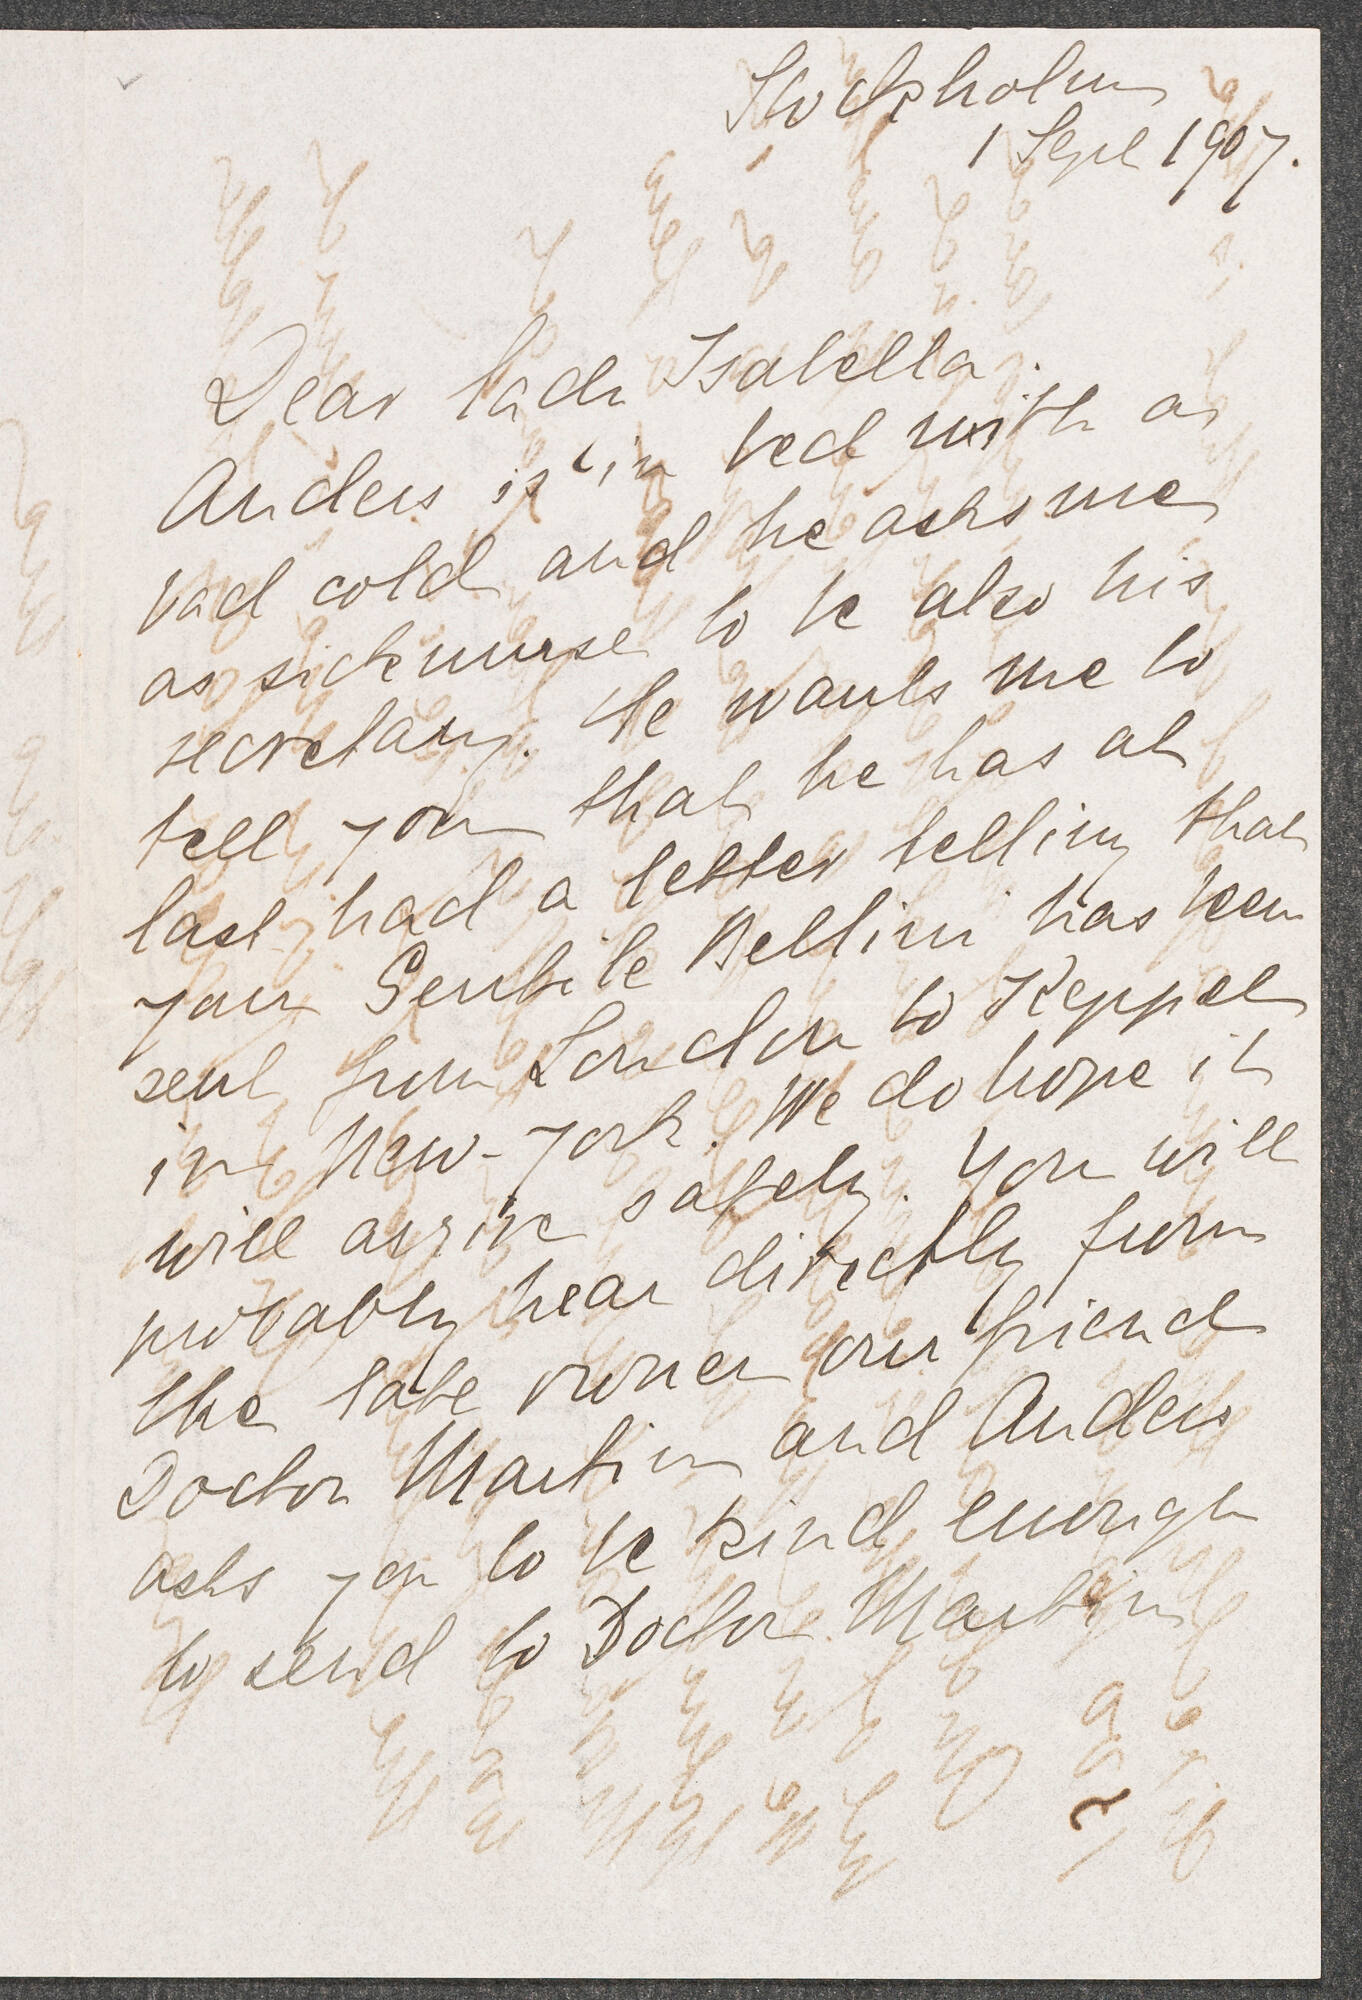 Stockholm
1 Sept 1907.
Dear Lady Isabella.
Anders is in bed with a
bad cold and he asks me
as sickenurse to be also his
secretary. He wants me to
tell you that he has at
last had a letter telling that
your Gentile Bellini has been
sent from London to Keppel
in New-York. We do hope it
will arrive safely. You will
probably hear directly from
the late owner our friend
Doctor Martin and Anders
asks you to be kind enough
to send to Doctor Martin